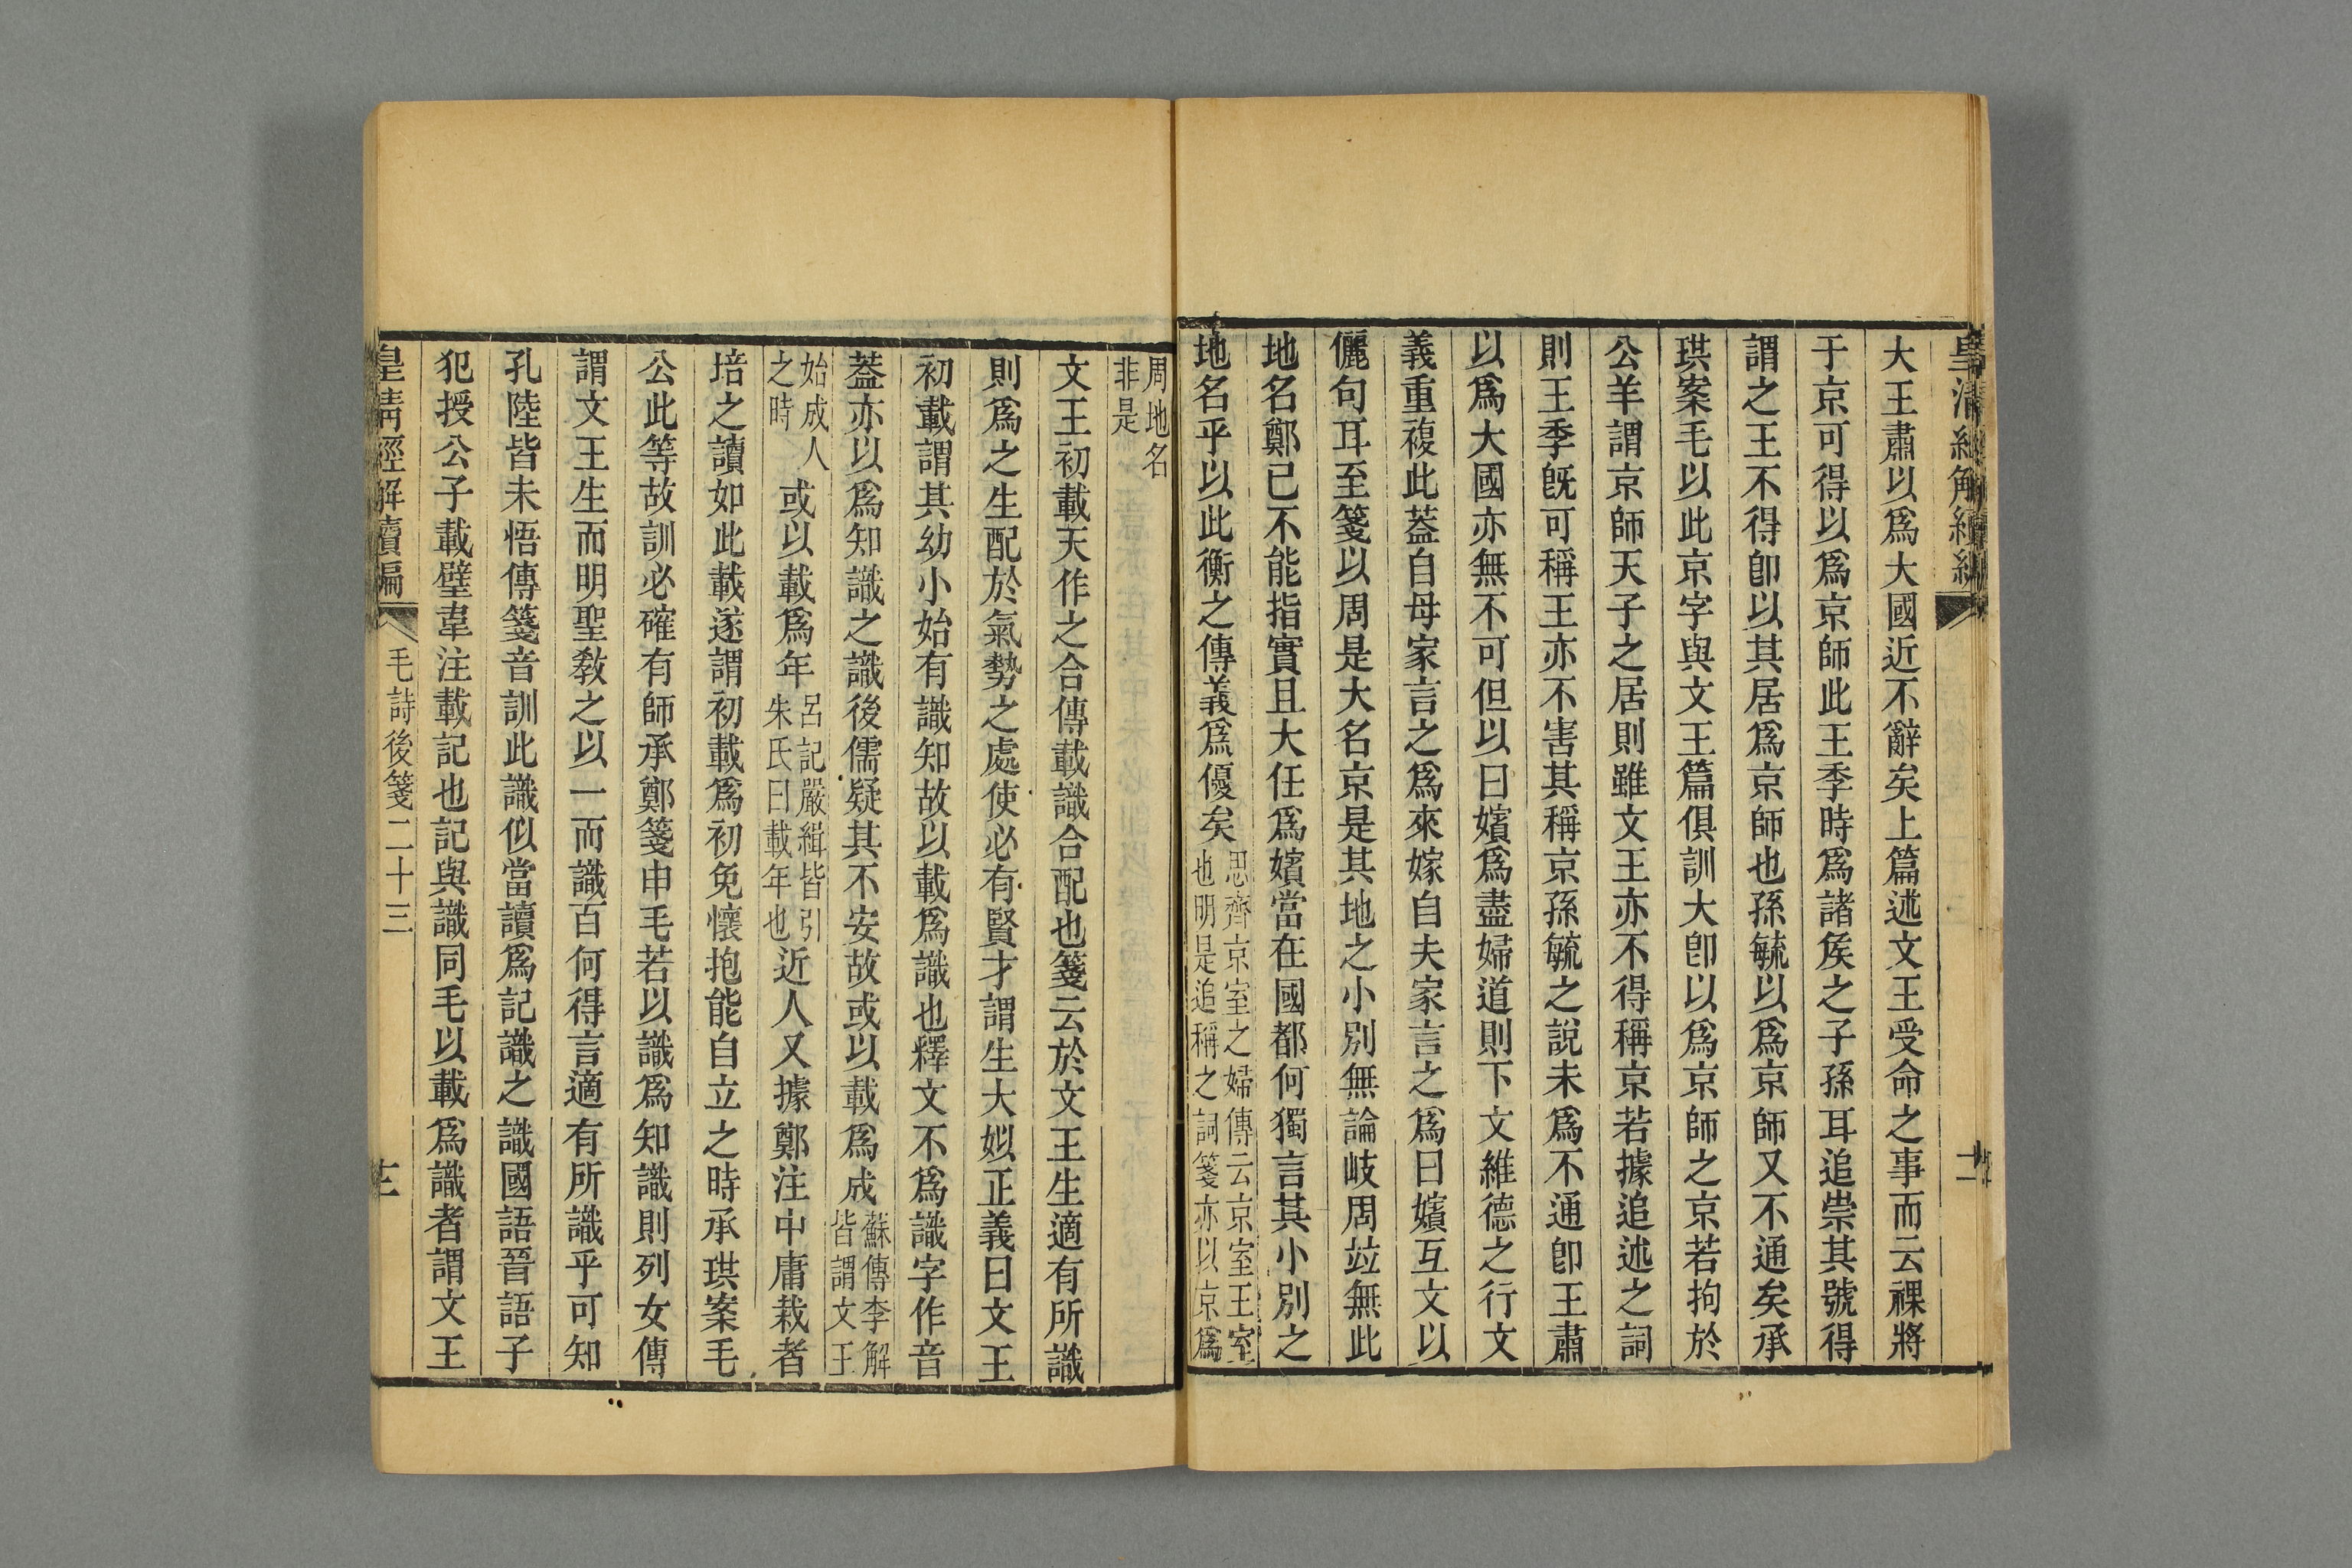 皇清經解續編
大王肅以爲大國近不辭矣上篇述文王受命之事而云祼將
于京可得以爲京師此王季時爲諸矦之子孫耳追崇其號得
謂之王不得卽以其居爲京師也孫毓以爲京師又不通矣承
珙案毛以此京字與文王篇俱訓大卽以爲京師之京若拘於
公羊謂京師天子之居則雖文王亦不得稱京若據追述之詞
則王季旣可稱王亦不害其稱京孫毓之說未爲不通卽王肅
以爲大國亦無不可但以曰嬪爲盡婦道則下文維德之行文
義重複此葢自母家言之爲來嫁自夫家言之爲曰嬪互文以
儷句耳至箋以周是大名京是其地之小別無論岐周竝無此
地名鄭已不能指實且大任爲嬪當在國都何獨言其小別之
地名乎以此衡之傳義爲優矣思齊京室之婦傳云京室王室也明是追稱之詞箋亦以京爲
周地名非是
文王初載天作之合傳載識合配也箋云於文王生適有所識
則爲之生配於氣勢之處使必有賢才謂生大姒正義曰文王
初載謂其幼小始有識知故以載爲識也釋文不爲識字作音
葢亦以爲知識之識後儒疑其不安故或以載爲成蘇傳李解皆謂文王
始成人之時或以載爲年呂記嚴緝皆引朱氏曰載年也近人又據鄭注中庸栽者
培之讀如此載遂謂初載爲初免懷抱能自立之時承珙案毛
公此等故訓必確有師承鄭箋申毛若以識爲知識則列女傳
謂文王生而明聖敎之以一而識百何得言適有所識乎可知
孔陸皆未悟傳箋音訓此識似當讀爲記識之識國語晉語子
犯授公子載璧韋注載記也記與識同毛以載爲識者謂文王
皇淸經解續編
毛詩後箋二十三